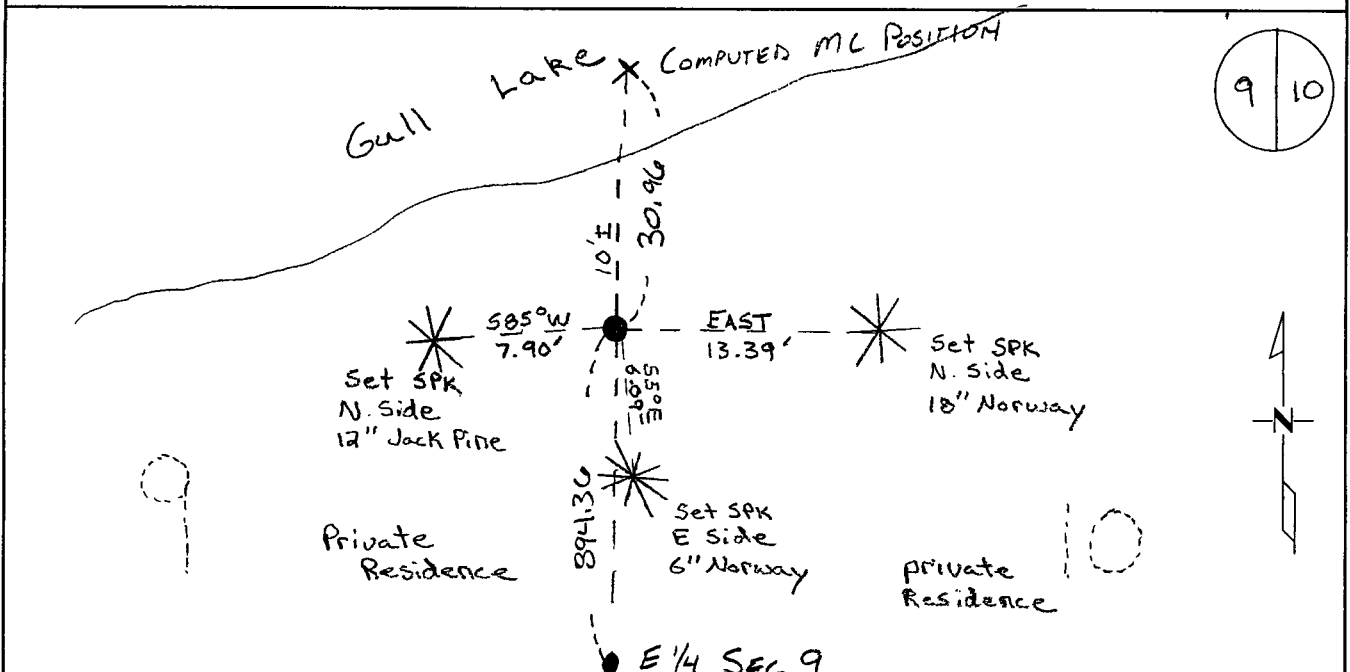 COMPUTED MC POSITION
Gull Lake
9 | 10
30.96
10'±
S85°W
7.90'
EAST
13.39'
Set SPK
N. Side
12" Jack Pine
Set SPK
N. Side
18" Norway
S5°E
6.09'
894.36
Set SPK
E Side
6" Norway
Private
Residence
private
Residence
N
E 1/4 SEC 9